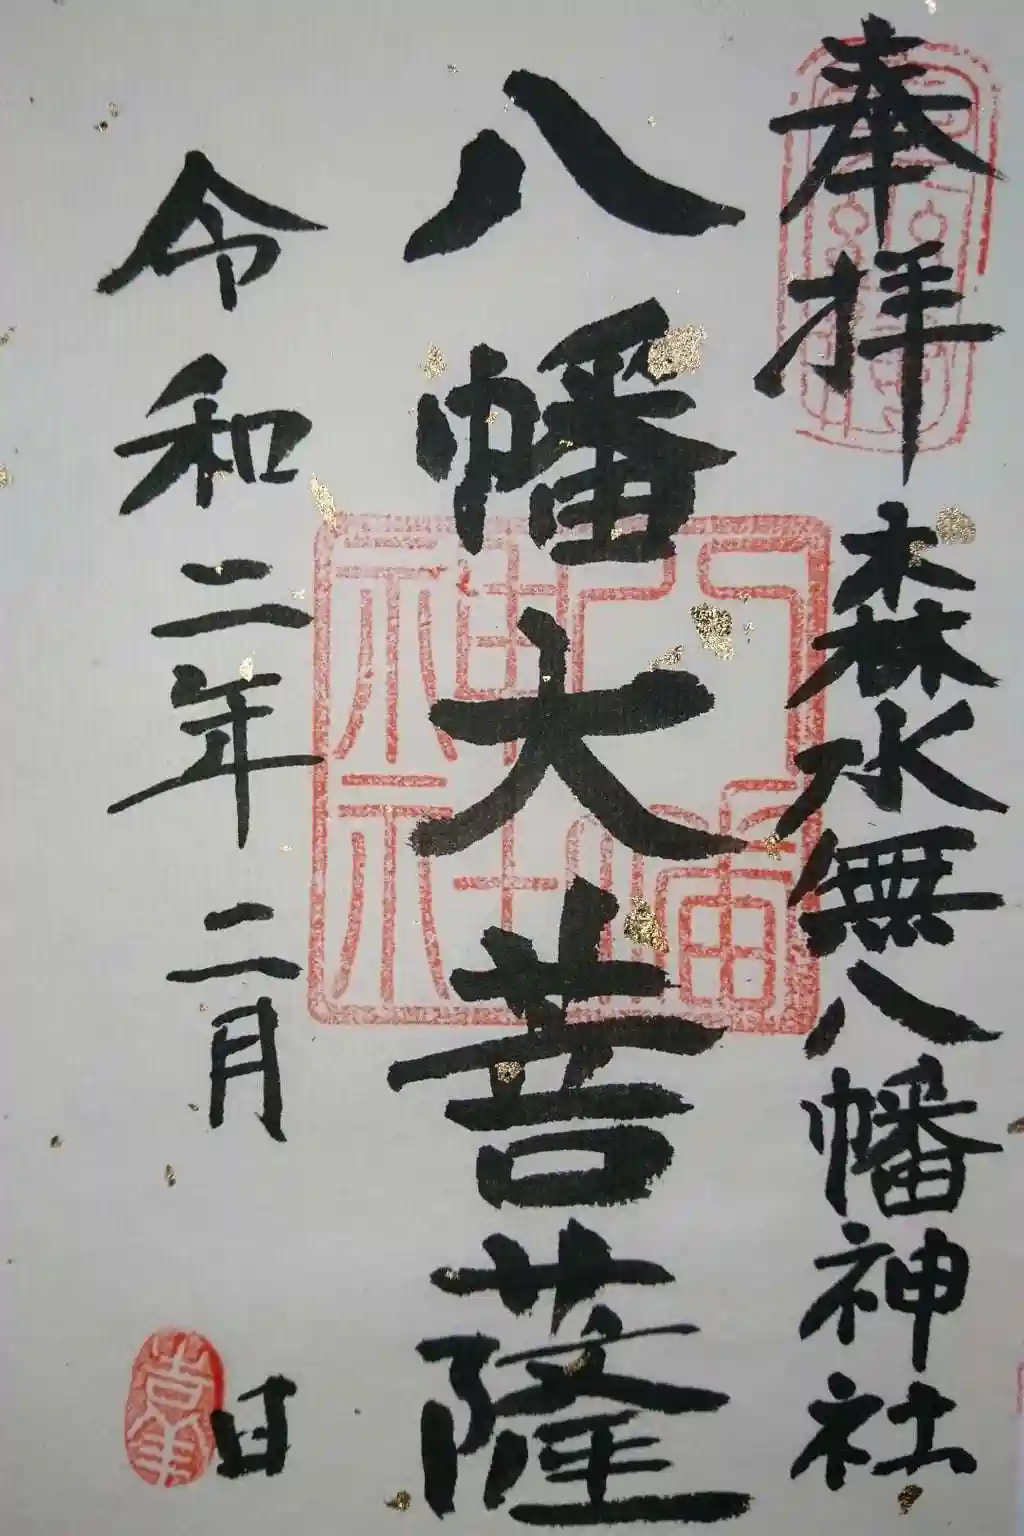 奉拝 森水無八幡神社
八幡大菩薩
令和二年二月 日
八幡神社
吉祥